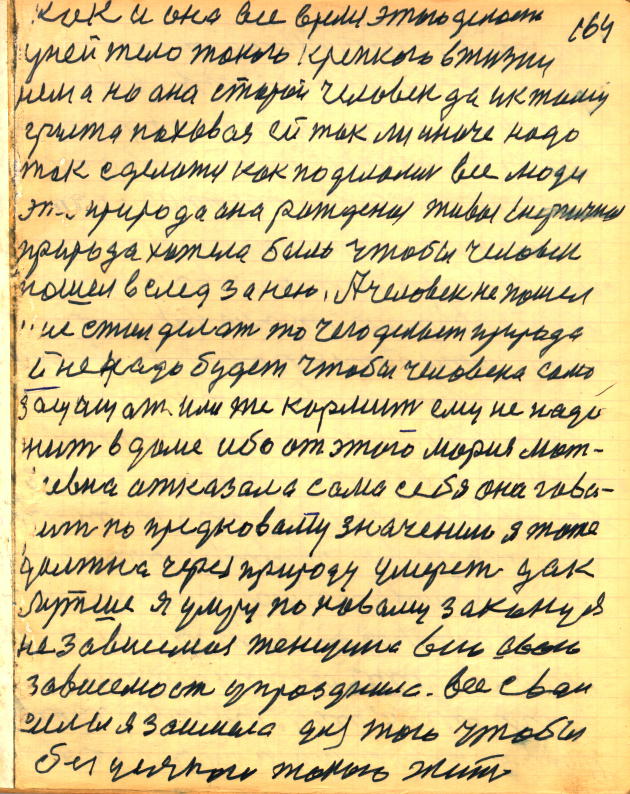 как и она все время этого делост 164
у ней тело такого крепкого в жизни
нема но она старой человек да и к тому
грипта паховая ей так ли иначе надо
так сделать как поделали все люди
эта природа она рождена живая
природа хотела быль чтобы человек
пошел в след за нею. А человек не пошел
не стал делат то чего делает природа
ей не надо будет чтобы человека само
защищат или же кормит ему не надо
жит в доме ибо от этого мария мат-
вевна отказала сама себя она гово-
рит по предковаму значению я тоже
должна через природу умереть дак
лутше я умру по новаму закону я
не зависемая женщина всю свою
зависемост упразднила. Все свои
силы я заимела для того чтобы
без усякого такого жить